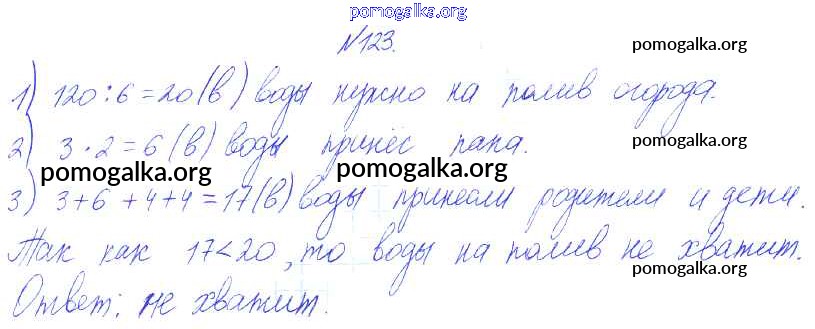 pomogalka.org
№123.
pomogalka.org
1) 120:6=20(в) воды нужно на полив огорода.
2) 3·2=6(в) воды принёс папа.
pomogalka.org pomogalka.org
3) 3+6+4+4=17(в) воды принесли родители и дети.
Так как 17<20, то воды на полив не хватит.
pomogalka.org
Ответ: не хватит.